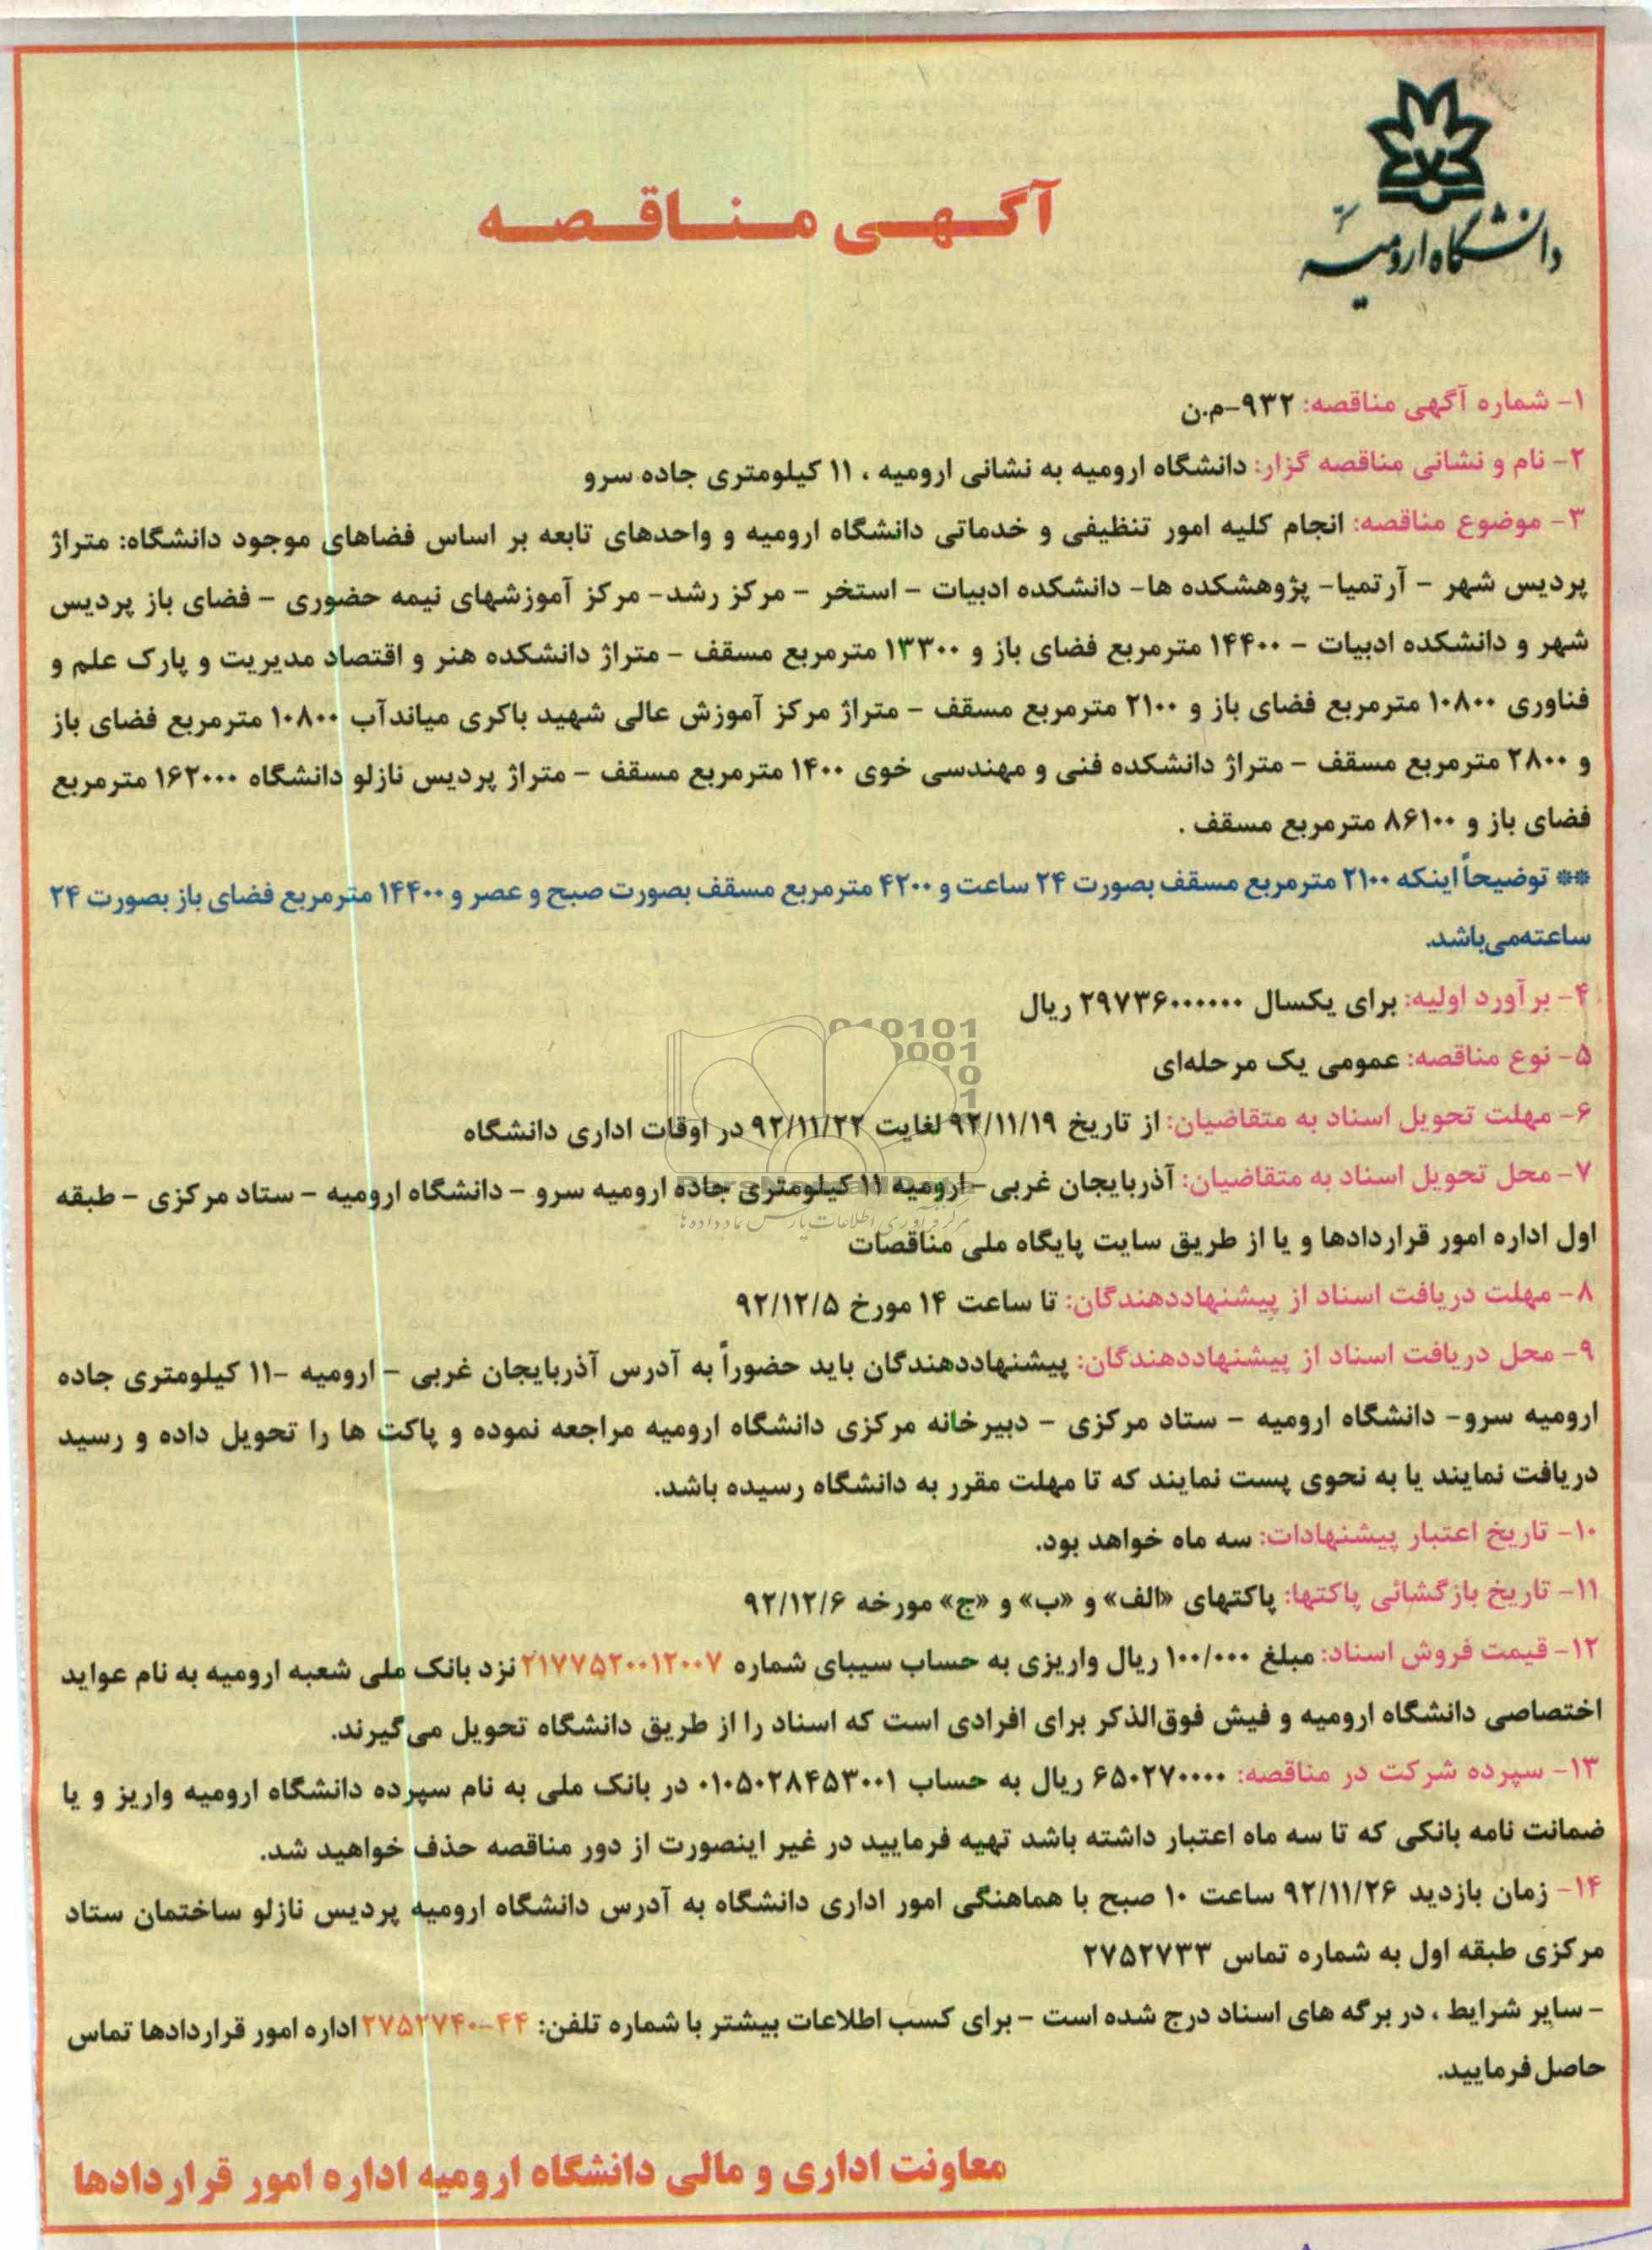 دانشگاه ارومیه
آگهی مناقصه
۱- شماره آگهی مناقصه: ۹۳۲-م.ن
۲- نام و نشانی مناقصه گزار: دانشگاه ارومیه به نشانی ارومیه ، ۱۱ کیلومتری جاده سرو
۳- موضوع مناقصه: انجام کلیه امور تنظیفی و خدماتی دانشگاه ارومیه و واحدهای تابعه بر اساس فضاهای موجود دانشگاه: متراژ
پردیس شهر - آرتمیا- پژوهشکده ها- دانشکده ادبیات - استخر - مرکز رشد- مرکز آموزشهای نیمه حضوری - فضای باز پردیس
شهر و دانشکده ادبیات - ۱۴۴۰۰ مترمربع فضای باز و ۱۳۳۰۰ مترمربع مسقف - متراژ دانشکده هنر و اقتصاد مدیریت و پارک علم و
فناوری ۱۰۸۰۰ مترمربع فضای باز و ۲۱۰۰ مترمربع مسقف - متراژ مرکز آموزش عالی شهید باکری میاندآب ۱۰۸۰۰ مترمربع فضای باز
و ۲۸۰۰ مترمربع مسقف - متراژ دانشکده فنی و مهندسی خوی ۱۴۰۰ مترمربع مسقف - متراژ پردیس نازلو دانشگاه ۱۶۲۰۰۰ مترمربع
فضای باز و ۸۶۱۰۰ مترمربع مسقف .
** توضیحاً اینکه ۲۱۰۰ مترمربع مسقف بصورت ۲۴ ساعت و ۴۲۰۰ مترمربع مسقف بصورت صبح و عصر و ۱۴۴۰۰ مترمربع فضای باز بصورت ۲۴
ساعته‌می‌باشد.
۴- برآورد اولیه: برای یکسال ۲۹۷۳۶۰۰۰۰۰۰ ریال
۵- نوع مناقصه: عمومی یک مرحله‌ای
۶- مهلت تحویل اسناد به متقاضیان: از تاریخ ۹۲/۱۱/۱۹ لغایت ۹۲/۱۱/۲۲ در اوقات اداری دانشگاه
۷- محل تحویل اسناد به متقاضیان: آذربایجان غربی - ارومیه ۱۱ کیلومتری جاده ارومیه سرو - دانشگاه ارومیه - ستاد مرکزی - طبقه
مرکز فرآوری اطلاعات پارس نماد داده ها
اول اداره امور قراردادها و یا از طریق سایت پایگاه ملی مناقصات
۸- مهلت دریافت اسناد از پیشنهاددهندگان: تا ساعت ۱۴ مورخ ۹۲/۱۲/۵
۹- محل دریافت اسناد از پیشنهاددهندگان: پیشنهاددهندگان باید حضوراً به آدرس آذربایجان غربی - ارومیه -۱۱ کیلومتری جاده
ارومیه سرو- دانشگاه ارومیه - ستاد مرکزی - دبیرخانه مرکزی دانشگاه ارومیه مراجعه نموده و پاکت ها را تحویل داده و رسید
دریافت نمایند یا به نحوی پست نمایند که تا مهلت مقرر به دانشگاه رسیده باشد.
۱۰- تاریخ اعتبار پیشنهادات: سه ماه خواهد بود.
۱۱- تاریخ بازگشائی پاکتها: پاکتهای «الف» و «ب» و «ج» مورخه ۹۲/۱۲/۶
۱۲- قیمت فروش اسناد: مبلغ ۱۰۰/۰۰۰ ریال واریزی به حساب سیبای شماره ۲۱۷۷۵۲۰۰۱۲۰۰۷ نزد بانک ملی شعبه ارومیه به نام عواید
اختصاصی دانشگاه ارومیه و فیش فوق‌الذکر برای افرادی است که اسناد را از طریق دانشگاه تحویل می‌گیرند.
۱۳- سپرده شرکت در مناقصه: ۶۵۰۲۷۰۰۰۰ ریال به حساب ۰۱۰۵۰۲۸۴۵۳۰۰۱ در بانک ملی به نام سپرده دانشگاه ارومیه واریز و یا
ضمانت نامه بانکی که تا سه ماه اعتبار داشته باشد تهیه فرمایید در غیر اینصورت از دور مناقصه حذف خواهید شد.
۱۴- زمان بازدید ۹۲/۱۱/۲۶ ساعت ۱۰ صبح با هماهنگی امور اداری دانشگاه به آدرس دانشگاه ارومیه پردیس نازلو ساختمان ستاد
مرکزی طبقه اول به شماره تماس ۲۷۵۲۷۳۳
- سایر شرایط ، در برگه های اسناد درج شده است - برای کسب اطلاعات بیشتر با شماره تلفن: ۴۴-۲۷۵۲۷۴۰ اداره امور قراردادها تماس
حاصل فرمایید.
معاونت اداری و مالی دانشگاه ارومیه اداره امور قراردادها